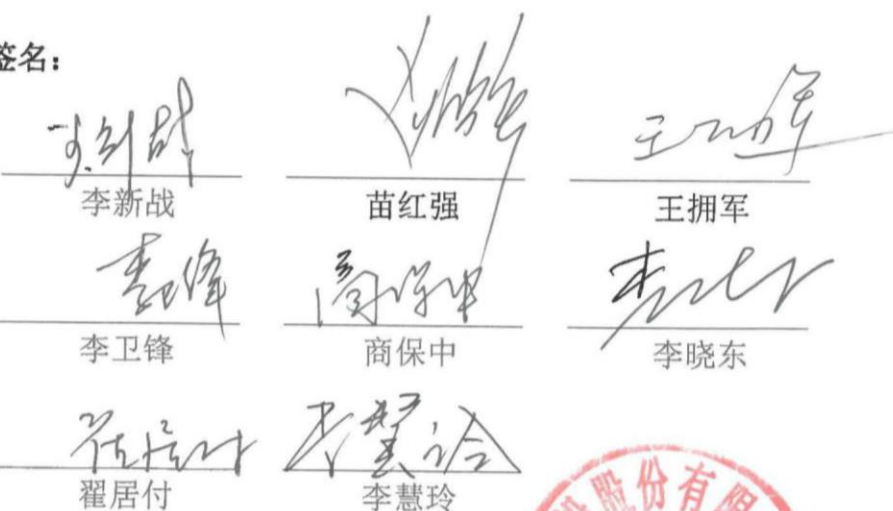 签名：
李新战 苗红强 王拥军
李卫锋 商保中 李晓东
翟居付 李慧玲
股份有限